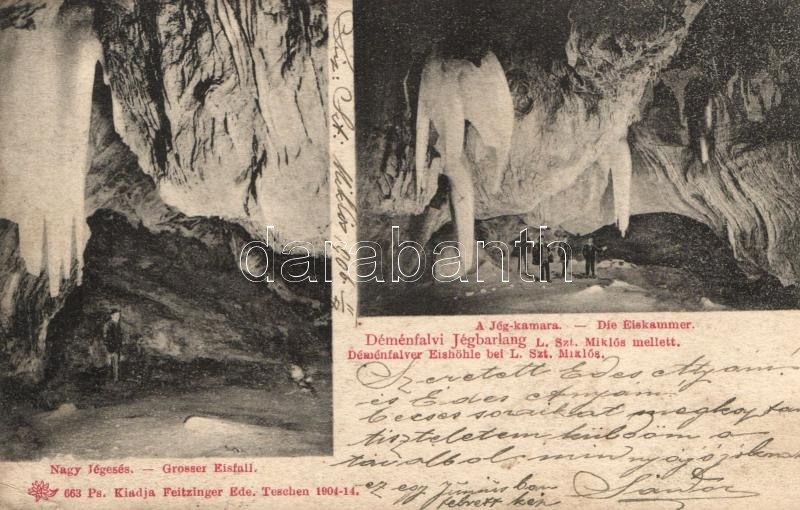 A Jég-kamara. — Die Eiskammer.
Déménfalvi Jégbarlang L. Szt. Miklós mellett.
Déménfalver Eishöhle bei L. Szt. Miklós.
Szeretett Édes Atyám
és Édes Anyám!
becses soraikat megkaptam
tiszteletem küldöm a
távolból
ez egy
Sándor
Nagy Jégesés. — Grosser Eisfall.
663 Ps. Kiadja Feitzinger Ede, Teschen 1904-14.
darabanth.com